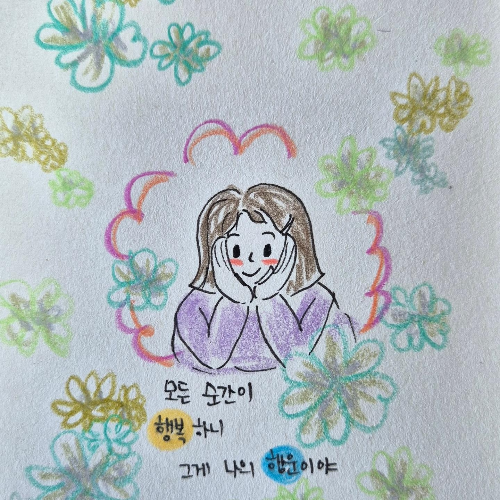 모든 순간이
행복 하니
그게 나의 행운이야